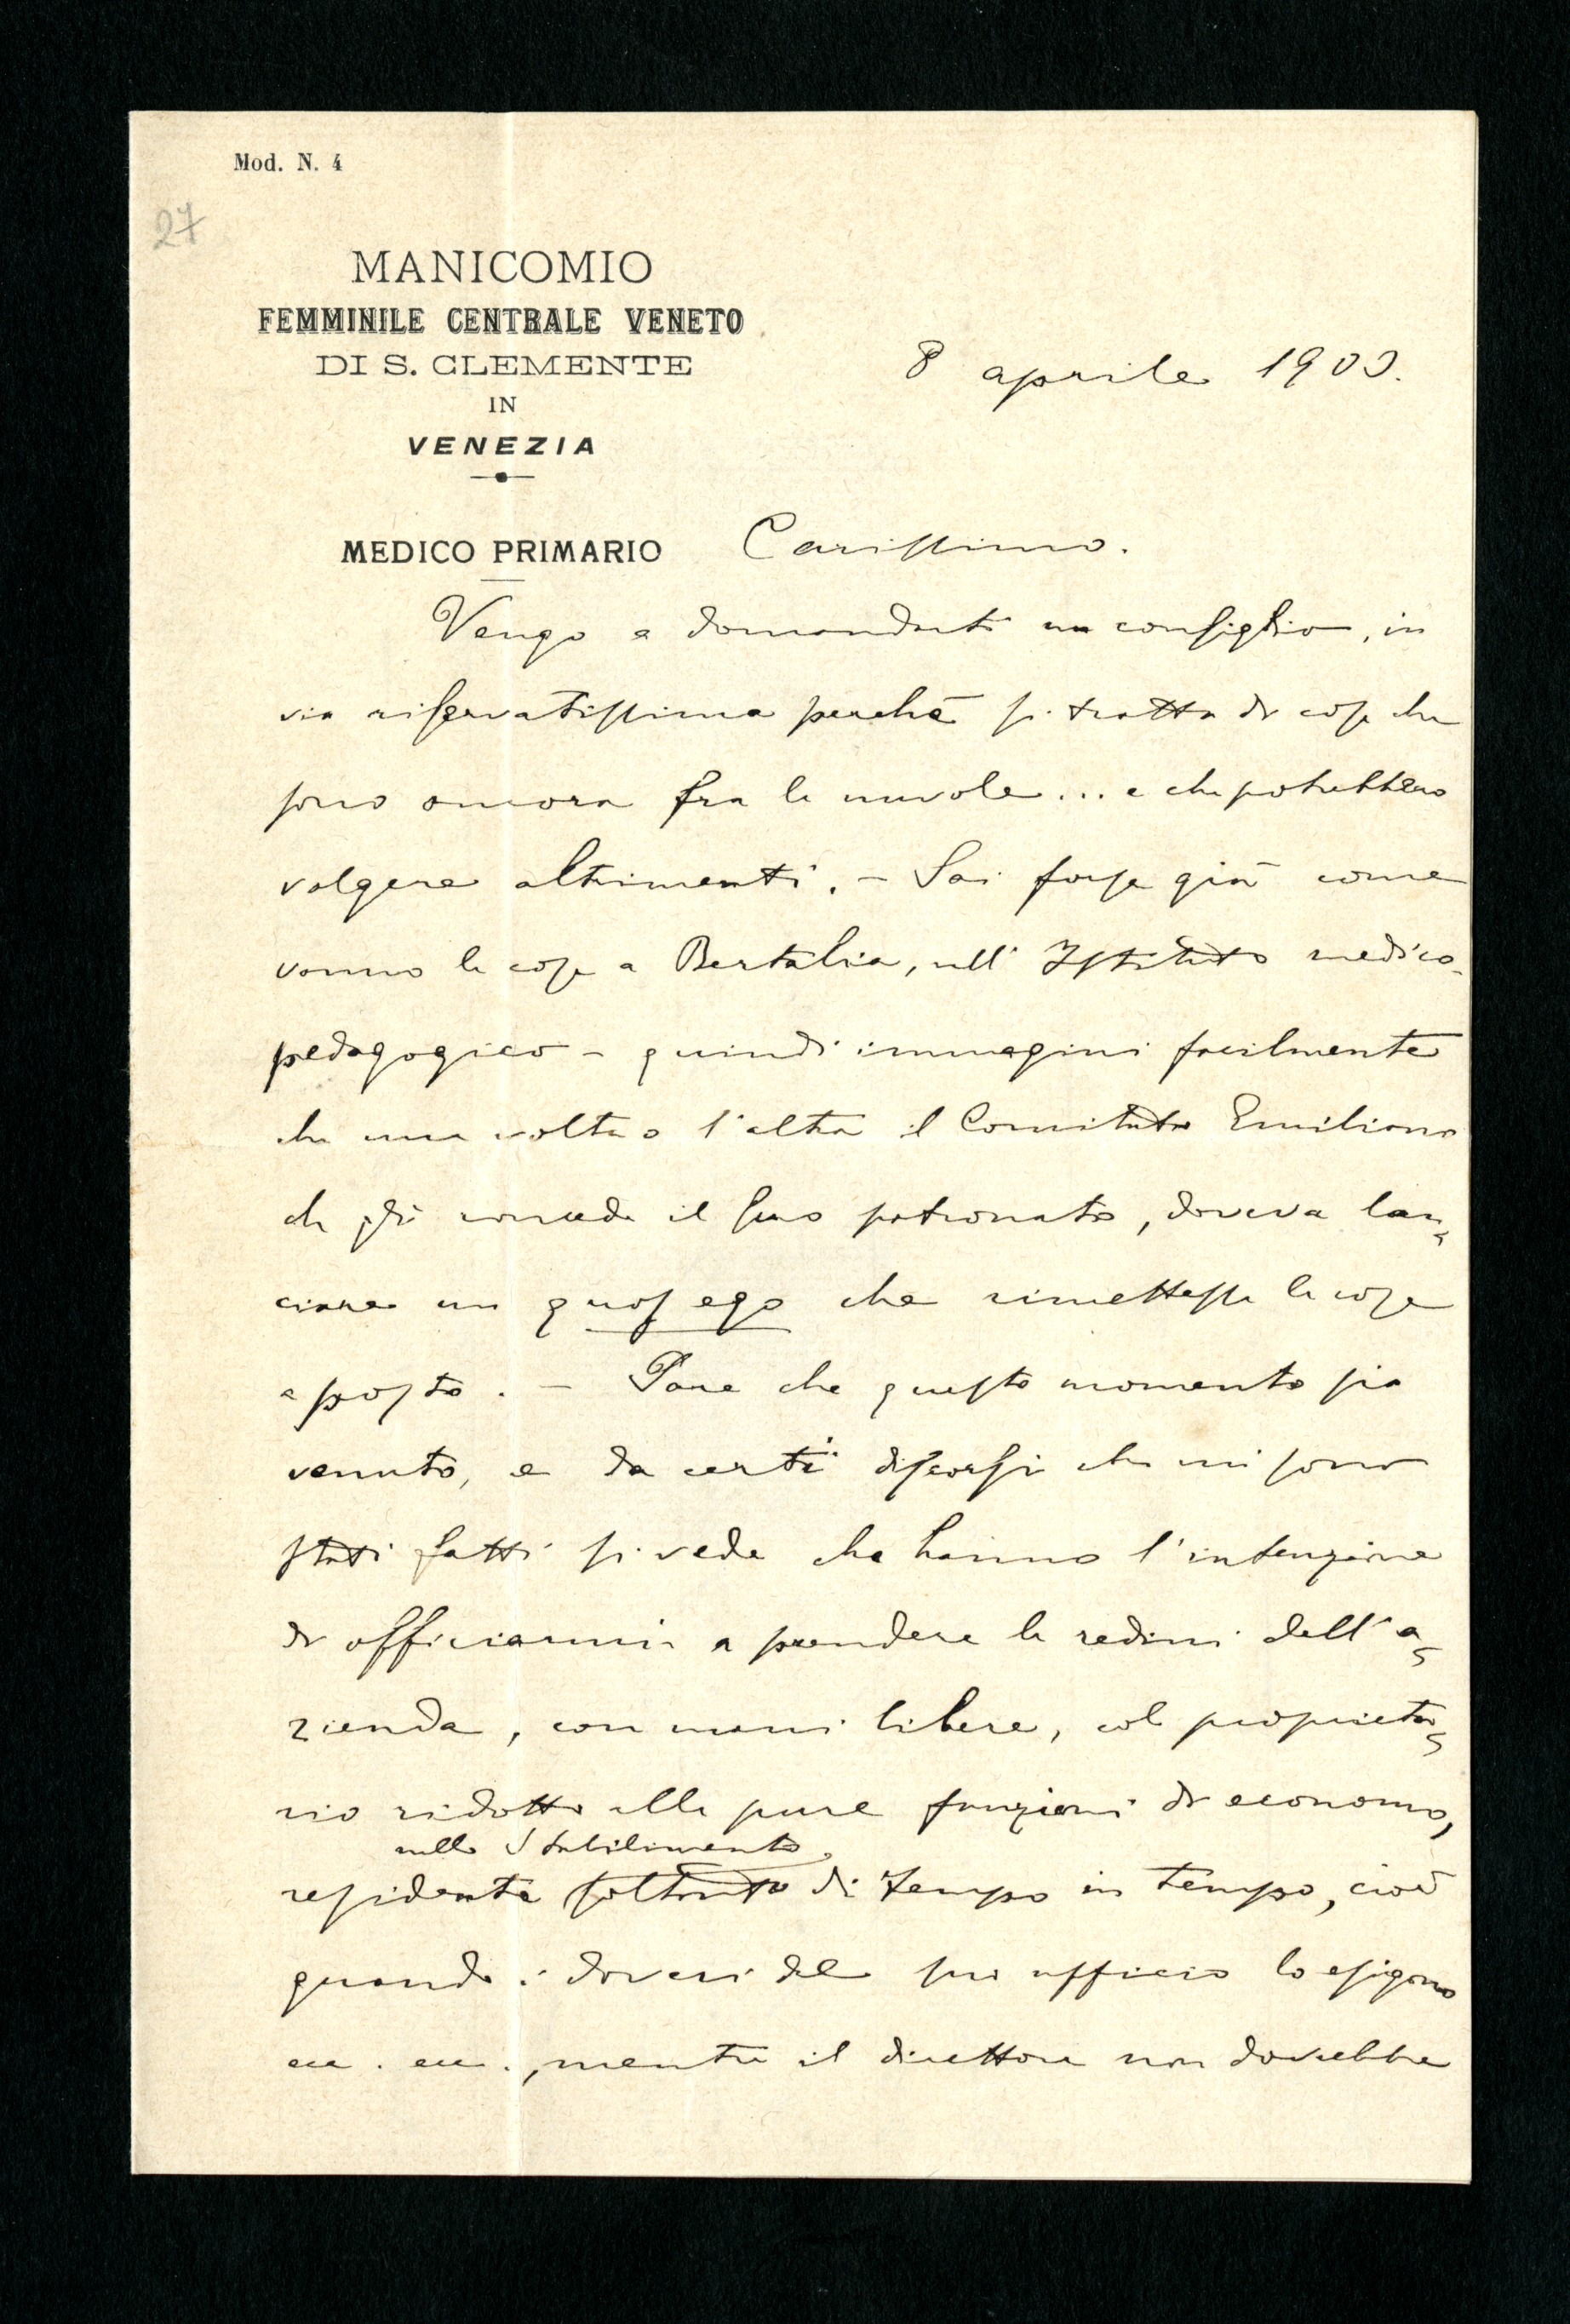 Mod. N. 4
27
MANICOMIO
FEMMINILE CENTRALE VENETO
DI S. CLEMENTE
IN
VENEZIA
8 aprile 1903.
MEDICO PRIMARIO
Carissimo.
Vengo a domandarti un consiglio, in
via riservatissima perchè si tratta di cose che
sono ancora fra le nuvole... e che potrebbero
volgere altrimenti. - Sai forse già come
vanno le cose a Bertalia, nell' Istituto medico-
pedagogico - quindi immagini facilmente
che una volta o l'altra il Comitato Emiliano
che gli concede il suo patronato, doveva lan-
ciare un quos ego che rimettesse le cose
a posto. - Pare che questo momento sia
venuto, e da certi discorsi che mi sono
stati fatti si vede che hanno l'intenzione
di officiarmi a prendere le redini dell'a-
zienda, con mani libere, col proprieta-
rio ridotto alle pure funzioni di economo,
nello Stabilimento
residente soltanto di tempo in tempo, cioè
quando i doveri del suo ufficio lo esigono
ecc. ecc., mentre il direttore non dovrebbe